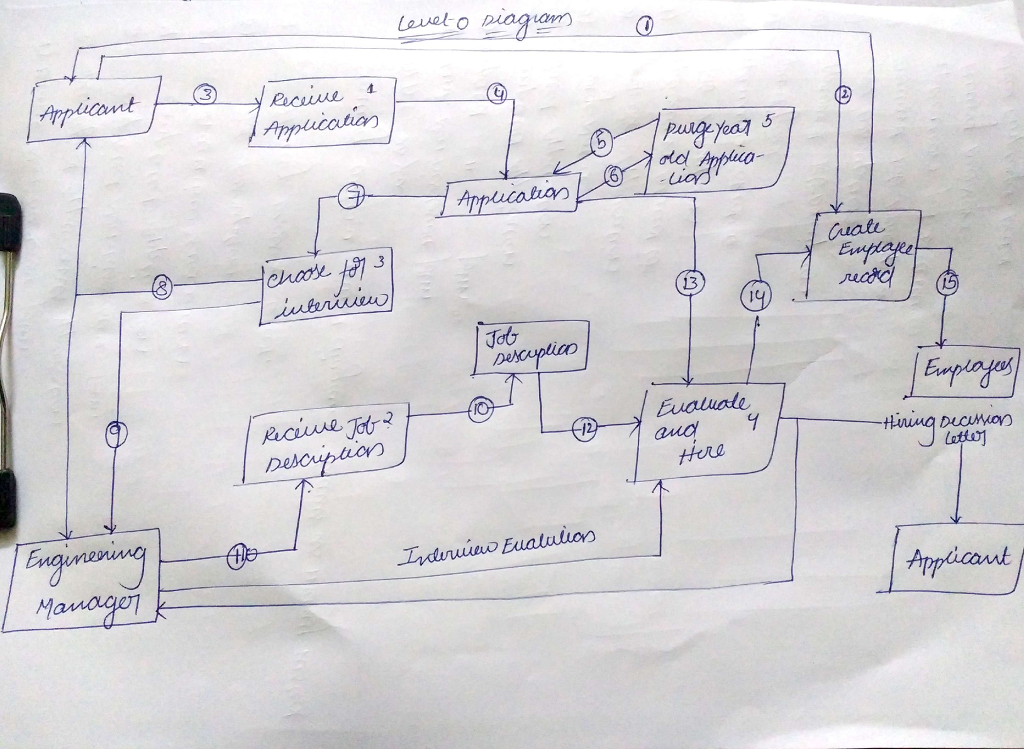 Level-0 Diagram
1
Applicant
3
Receive 1
Application
4
2
5
6
Purge year 5
old Applica-
-tions
Application
7
Create
Employee
record
8
Choose for 3
interview
13
14
15
Job
Description
Employees
9
10
12
Receive Job 2
Description
Evaluate 4
and
Hire
Hiring Decission
letter
Engineering
Manager
11
Interview Evalution
Applicant